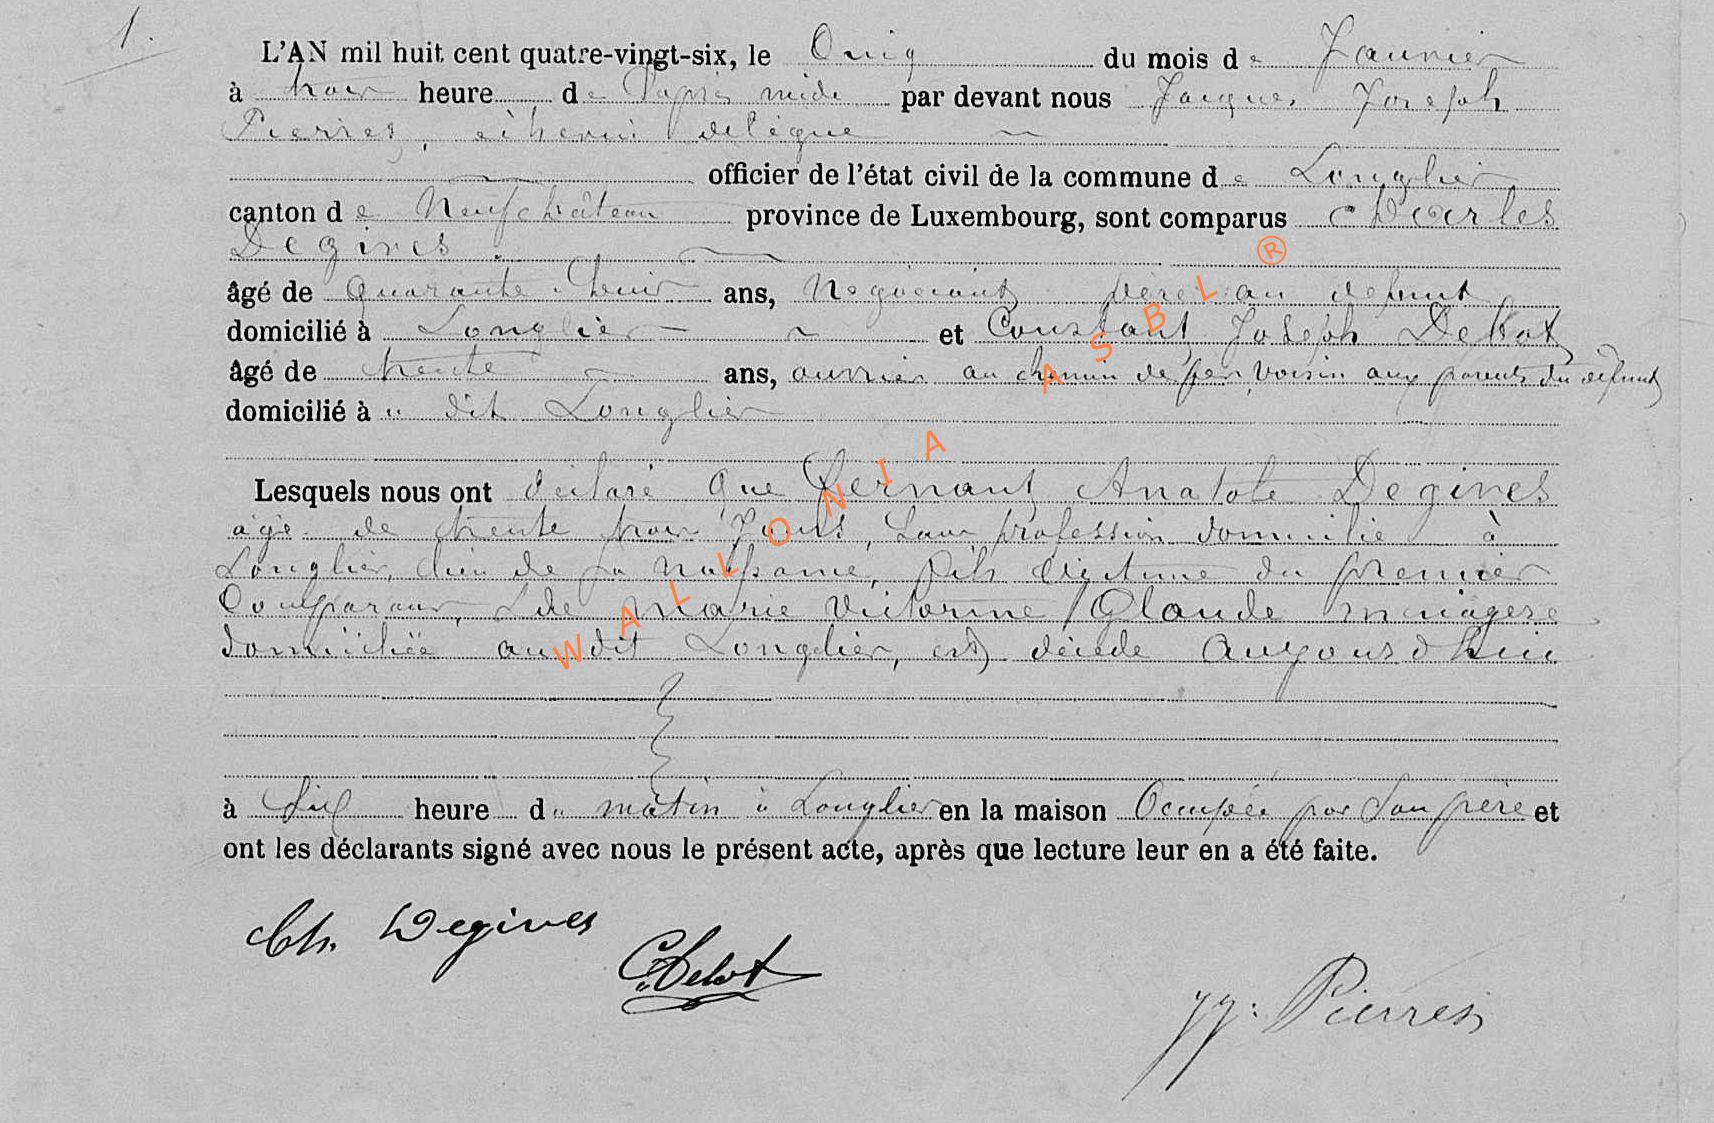 1.
L'AN mil huit cent quatre-vingt-six, le Onig du mois de Janvier
à trois heure de l'après midi par devant nous Jacques Joseph
Pierres, échevin délégué
officier de l'état civil de la commune de Longlier
canton de Neufchâteau province de Luxembourg, sont comparus Charles
Degives
âgé de quarante huit ans, Negociant père au defunt
domicilié à Longlier et Constant Joseph Delhot
âgé de trente ans, ouvrier au chemin de fer, voisin aux parents du défunt
domicilié à u dit Longlier
Lesquels nous ont déclaré que Fernant Anatole Degives
âgé de trente trois Jours, Sans profession domicilié à
Longlier, lieu de sa naissance, fils légitime du premier
Comparant, de Marie Victorine Glaude ménagère
domiciliée au dit Longlier, est décédé aujourd'hui
à six heure du matin à Longlier en la maison Occupée par Son père et
ont les déclarants signé avec nous le présent acte, après que lecture leur en a été faite.
Ch. Degives
C. Delot
JJ. Pierres
WALLONIA ASBL ®